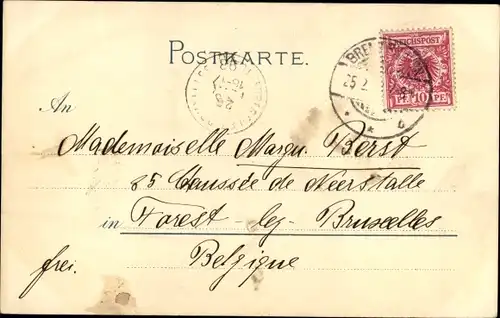 POSTKARTE.
REICHSPOST
PF 10 PF
25 2
An
Mademoiselle Margu. Berst
25 Caussée de Neerstalle
in Forest lez-Bruxelles
frei. Belgique